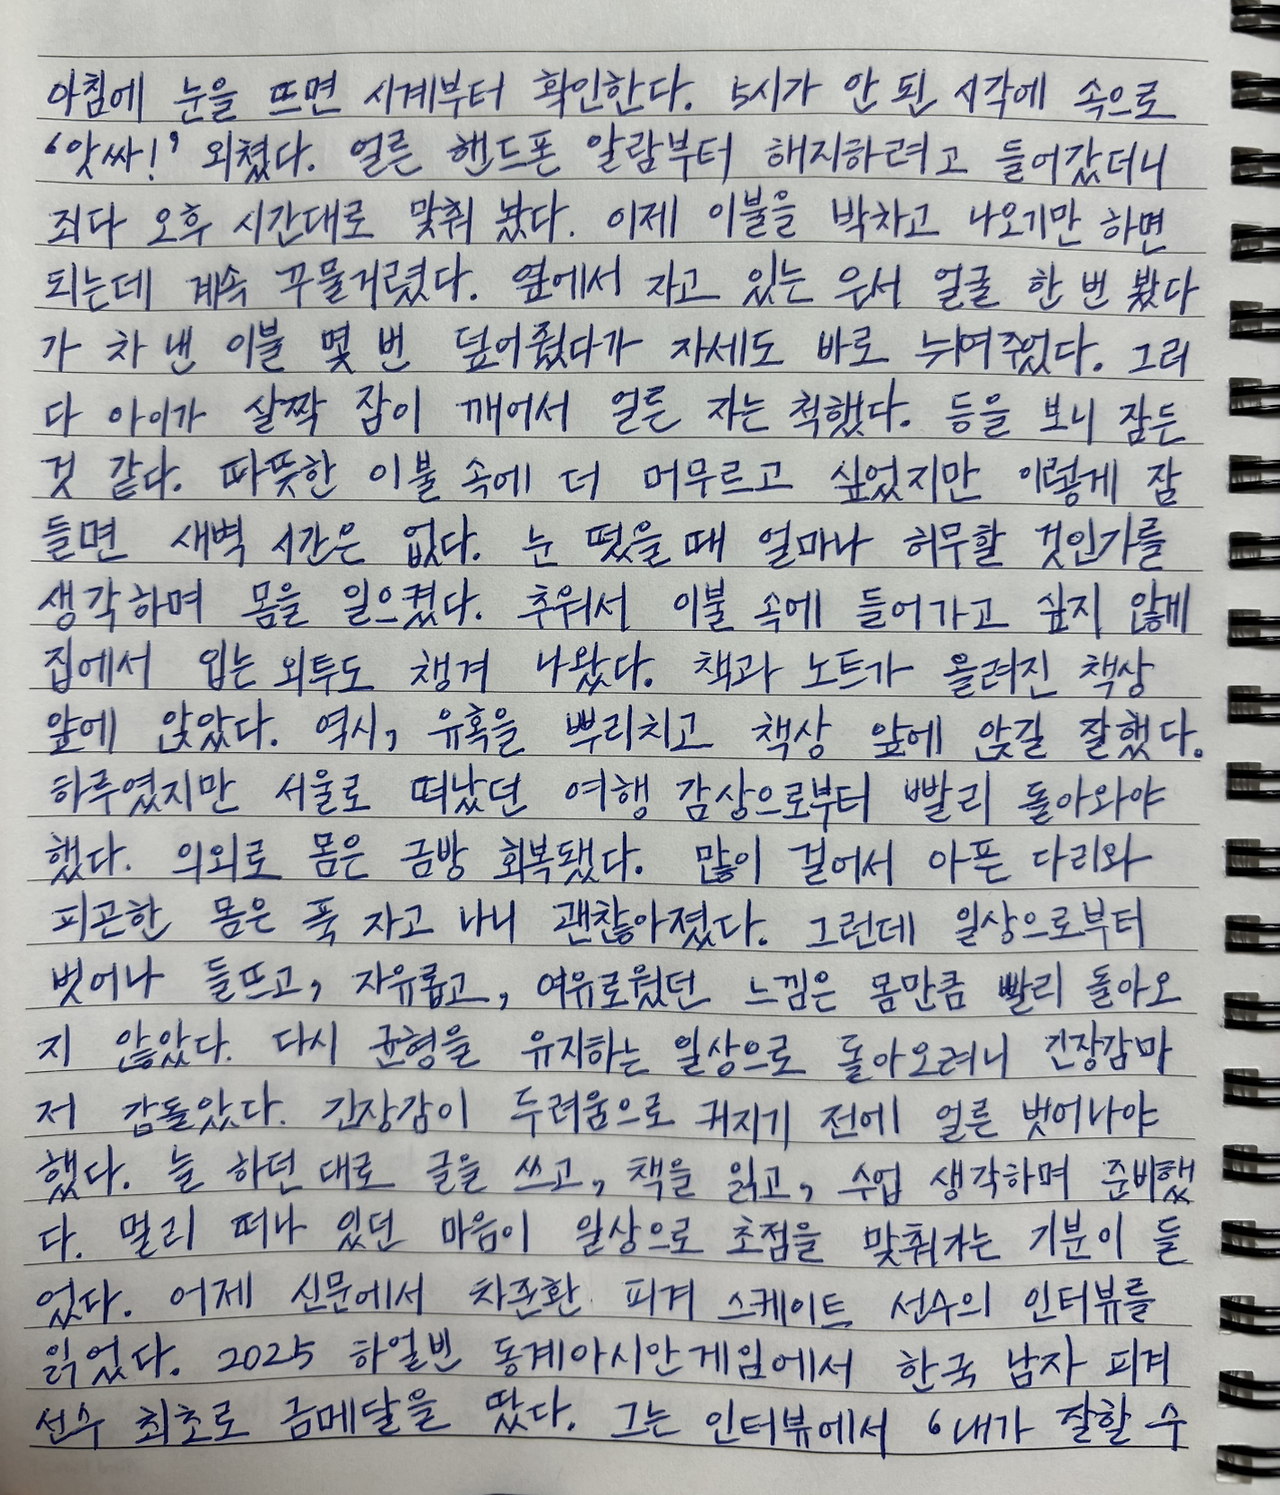 아침에 눈을 뜨면 시계부터 확인한다. 5시가 안 된 시각에 속으로
'앗싸!' 외쳤다. 얼른 핸드폰 알람부터 해지하려고 들어갔더니
죄다 오후 시간대로 맞춰 놨다. 이제 이불을 박차고 나오기만 하면
되는데 계속 꾸물거렸다. 옆에서 자고 있는 은서 얼굴 한 번 봤다
가 차 낸 이불 몇 번 덮어줬다가 자세도 바로 뉘여주었다. 그러
다 아이가 살짝 잠이 깨어서 얼른 자는 척했다. 등을 보니 잠든
것 같다. 따뜻한 이불 속에 더 머무르고 싶었지만 이렇게 잠
들면 새벽 시간은 없다. 눈 떴을 때 얼마나 허무할 것인가를
생각하며 몸을 일으켰다. 추워서 이불 속에 들어가고 싶지 않게
집에서 입는 외투도 챙겨 나왔다. 책과 노트가 올려진 책상
앞에 앉았다. 역시, 유혹을 뿌리치고 책상 앞에 앉길 잘했다.
하루였지만 서울로 떠났던 여행 감상으로부터 빨리 돌아와야
했다. 의외로 몸은 금방 회복됐다. 많이 걸어서 아픈 다리와
피곤한 몸은 푹 자고 나니 괜찮아졌다. 그런데 일상으로부터
벗어나 들뜨고, 자유롭고, 여유로웠던 느낌은 몸만큼 빨리 돌아오
지 않았다. 다시 균형을 유지하는 일상으로 돌아오려니 긴장감마
저 감돌았다. 긴장감이 두려움으로 커지기 전에 얼른 벗어나야
했다. 늘 하던 대로 글을 쓰고, 책을 읽고, 수업 생각하며 준비했
다. 멀리 떠나 있던 마음이 일상으로 초점을 맞춰가는 기분이 들
었다. 어제 신문에서 차준환 피겨 스케이트 선수의 인터뷰를
읽었다. 2025 하얼빈 동계아시안게임에서 한국 남자 피겨
선수 최초로 금메달을 땄다. 그는 인터뷰에서 '내가 잘할 수